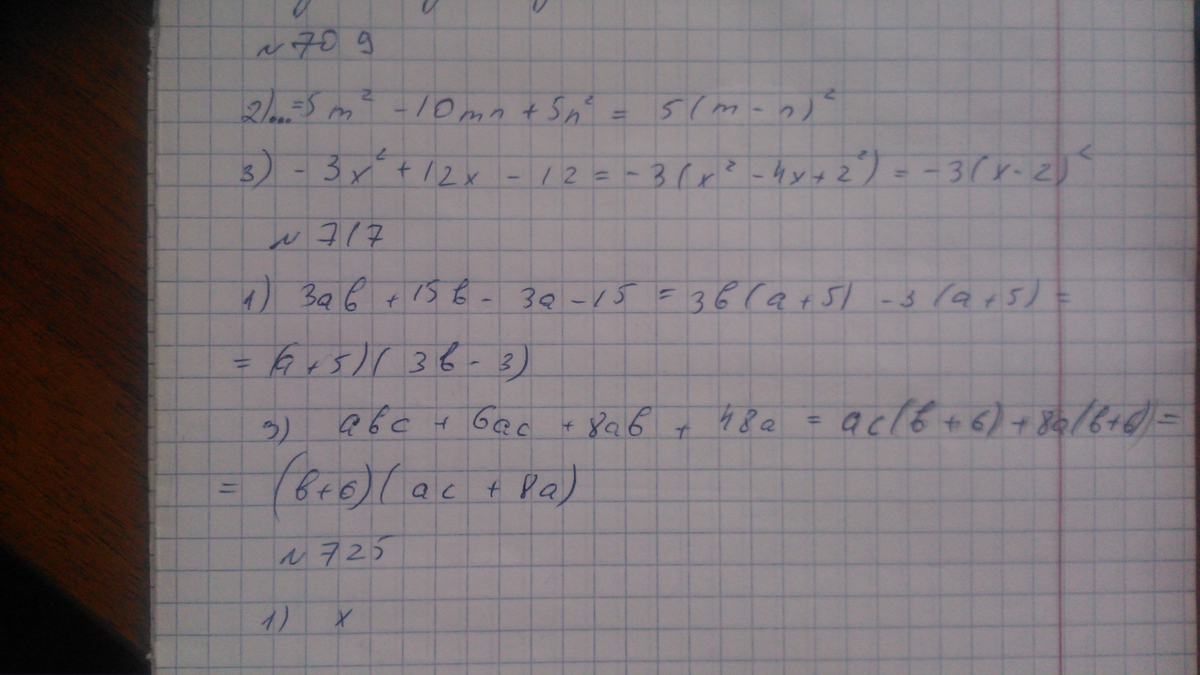 № 709
2)...=5m² - 10mn + 5n² = 5(m - n)²
3) - 3x² + 12x - 12 = - 3(x² - 4x + 2²) = - 3(x - 2)²
№ 717
1) 3ab + 15b - 3a - 15 = 3b(a + 5) - 3(a + 5) =
= (a + 5)(3b - 3)
3) abc + 6ac + 8ab + 48a = ac(b + 6) + 8a(b + 6) =
= (b + 6)(ac + 8a)
№ 725
1) x